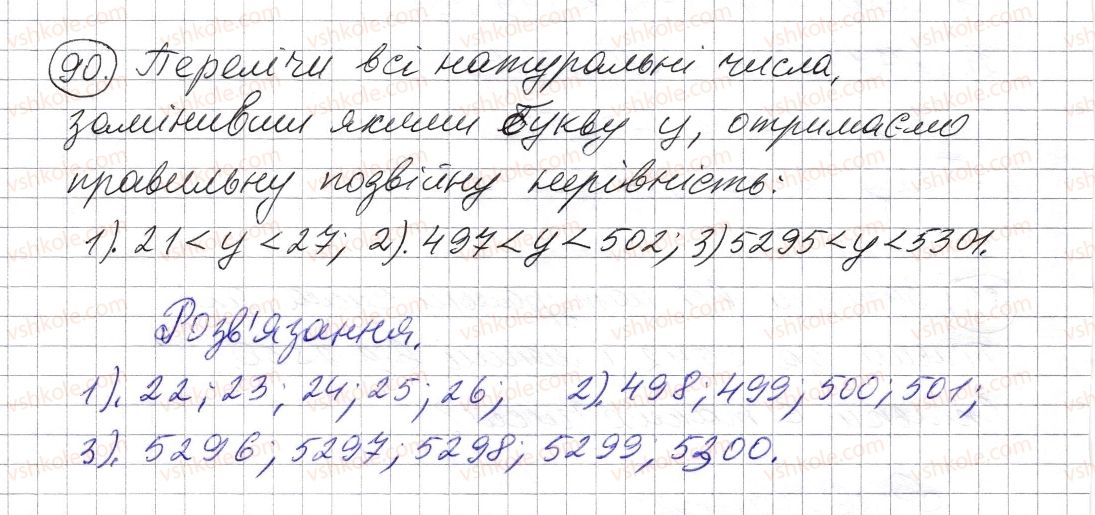 90. Перелічи всі натуральні числа,
замінивши якими букву y, отримаємо
правильну подвійну нерівність:
1). 21 < y < 27; 2). 497 < y < 502; 3) 5295 < y < 5301.
Розв'язання.
1). 22; 23; 24; 25; 26; 2). 498; 499; 500; 501;
3). 5296; 5297; 5298; 5299; 5300.